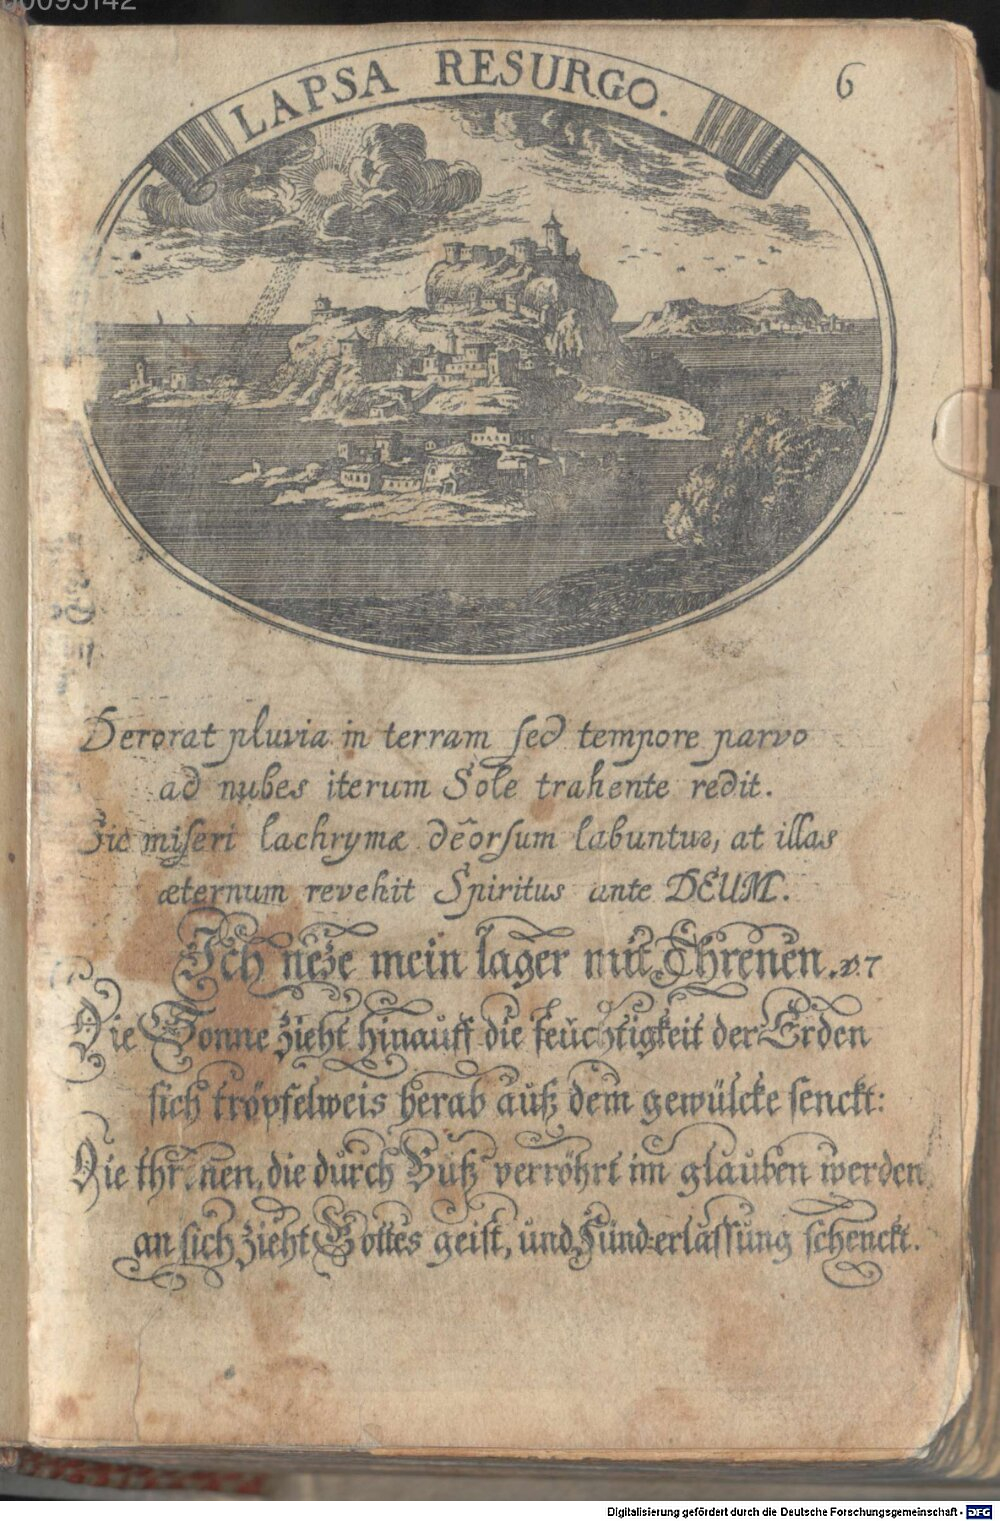 00095142
6
LAPSA RESURGO.
Derorat pluvia in terram sed tempore parvo
ad nubes iterum Sole trahente redit.
Sic miseri lachrymæ deorsum labuntur, at illas
æternum revehit Spiritus ante DEUM.
Ich neze mein lager mit Threnen. v. 7
Die Sonne zieht hinauff die feuchtigkeit der Erden
sich tröpfelweis herab auß dem gewülcke senckt:
Die threnen, die durch Buß verröhrt im glauben werden
an sich zieht Gottes geist, und Sünd-erlassung schenckt.
Digitalisierung gefördert durch die Deutsche Forschungsgemeinschaft - DFG